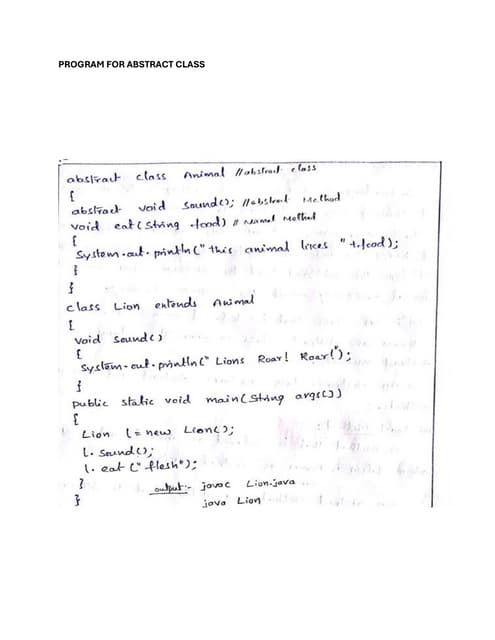 PROGRAM FOR ABSTRACT CLASS
abstract class Animal //abstract class
{
abstract void sound(); //abstract Method
void eat(String food) // Normal Method
{
System.out.println("this animal likes "+food);
}
}
class Lion extends Animal
{
void sound()
{
System.out.println("Lions Roar! Roar!");
}
public static void main(String args[])
{
Lion l=new Lion();
l.sound();
l.eat("flesh");
}
}
output:- javac Lion.java
java Lion